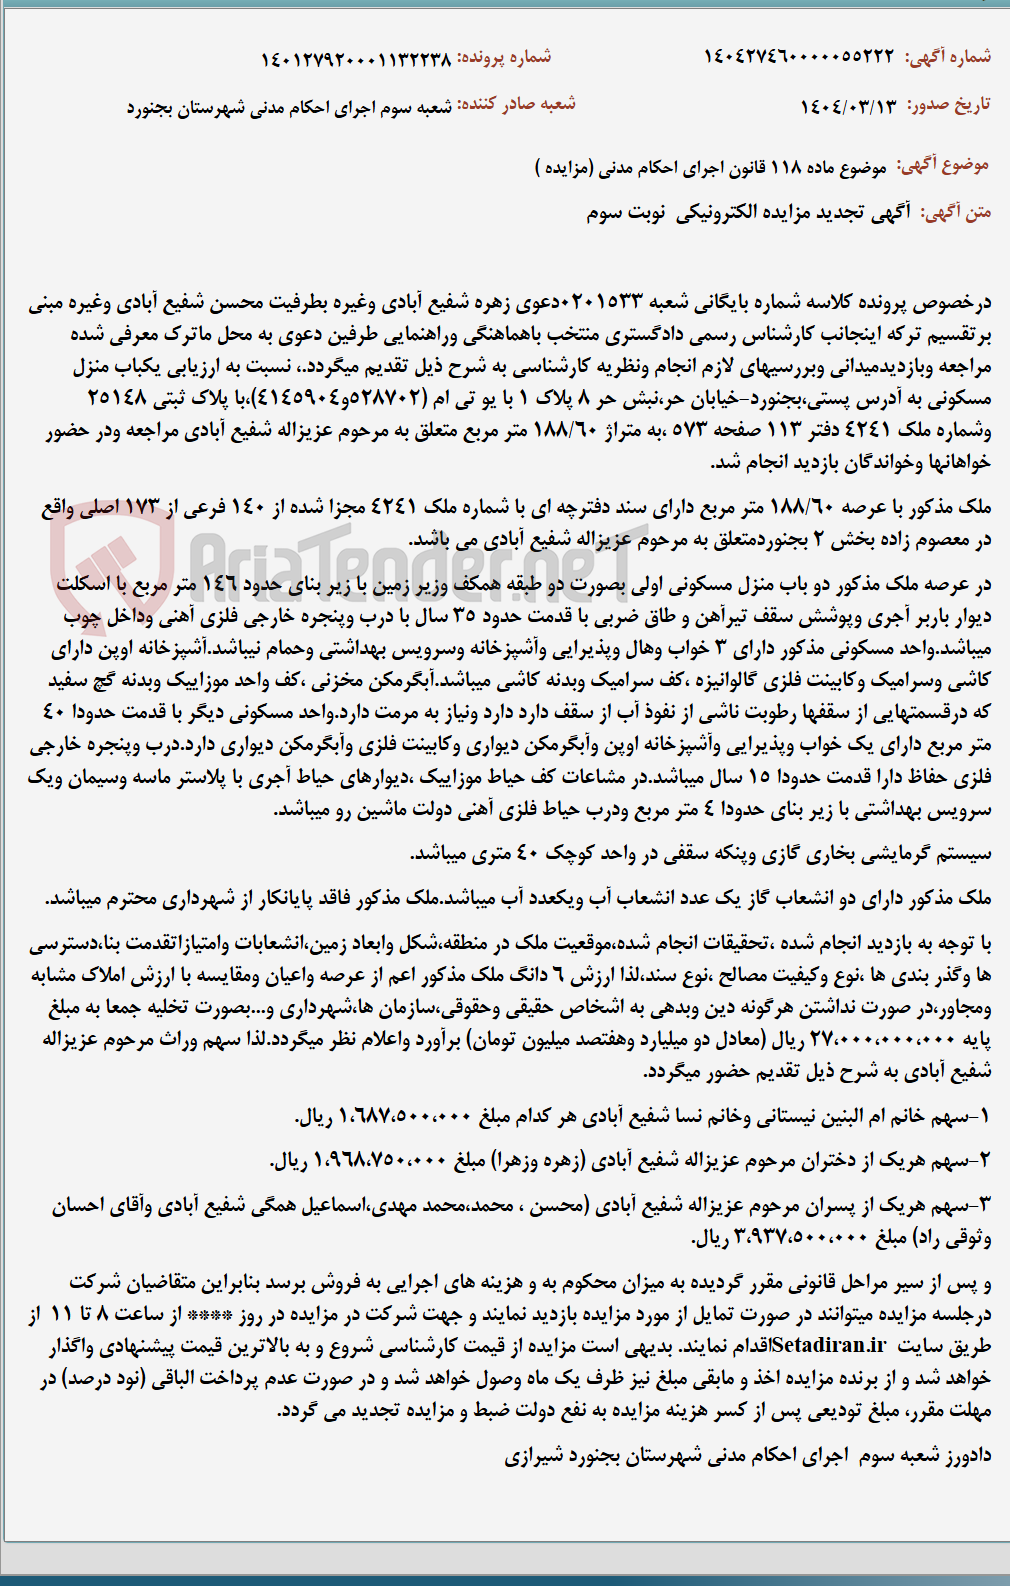 شماره آگهی: ۱۴۰۴۲۷۴۶۰۰۰۰۰۵۵۲۲۲ شماره پرونده: ۱۴۰۱۲۷۹۲۰۰۰۱۱۳۲۲۳۸
تاریخ صدور: ۱۴۰۴/۰۳/۱۳ شعبه صادر کننده: شعبه سوم اجرای احکام مدنی شهرستان بجنورد
موضوع آگهی: موضوع ماده ۱۱۸ قانون اجرای احکام مدنی (مزایده )
متن آگهی: آگهی تجدید مزایده الکترونیکی نوبت سوم
درخصوص پرونده کلاسه شماره بایگانی شعبه ۰۲۰۱۵۳۳دعوی زهره شفیع آبادی وغیره بطرفیت محسن شفیع آبادی وغیره مبنی
برتقسیم ترکه اینجانب کارشناس رسمی دادگستری منتخب باهماهنگی وراهنمایی طرفین دعوی به محل ماترک معرفی شده
مراجعه وبازدیدمیدانی وبررسیهای لازم انجام ونظریه کارشناسی به شرح ذیل تقدیم میگردد.، نسبت به ارزیابی یکباب منزل
مسکونی به آدرس پستی،بجنورد-خیابان حر،نبش حر ۸ پلاک ۱ با یو تی ام (۵۲۸۷۰۲و۴۱۴۵۹۰۴)،با پلاک ثبتی ۲۵۱۴۸
وشماره ملک ۴۲۴۱ دفتر ۱۱۳ صفحه ۵۷۳ ،به متراژ ۱۸۸/۶۰ متر مربع متعلق به مرحوم عزیزاله شفیع آبادی مراجعه ودر حضور
خواهانها وخواندگان بازدید انجام شد.
ملک مذکور با عرصه ۱۸۸/۶۰ متر مربع دارای سند دفترچه ای با شماره ملک ۴۲۴۱ مجزا شده از ۱۴۰ فرعی از ۱۷۳ اصلی واقع
در معصوم زاده بخش ۲ بجنوردمتعلق به مرحوم عزیزاله شفیع آبادی می باشد.
AriaTender.neT
در عرصه ملک مذکور دو باب منزل مسکونی اولی بصورت دو طبقه همکف وزیر زمین با زیر بنای حدود ۱۴۶ متر مربع با اسکلت
دیوار باربر آجری وپوشش سقف تیرآهن و طاق ضربی با قدمت حدود ۳۵ سال با درب وپنجره خارجی فلزی آهنی وداخل چوب
میباشد.واحد مسکونی مذکور دارای ۳ خواب وهال وپذیرایی وآشپزخانه وسرویس بهداشتی وحمام نیباشد.آشپزخانه اوپن دارای
کاشی وسرامیک وکابینت فلزی گالوانیزه ،کف سرامیک وبدنه کاشی میباشد.آبگرمکن مخزنی ،کف واحد موزاییک وبدنه گچ سفید
که درقسمتهایی از سقفها رطوبت ناشی از نفوذ آب از سقف دارد دارد ونیاز به مرمت دارد.واحد مسکونی دیگر با قدمت حدودا ۴۰
متر مربع دارای یک خواب وپذیرایی وآشپزخانه اوپن وآبگرمکن دیواری وکابینت فلزی وآبگرمکن دیواری دارد.درب وپنجره خارجی
فلزی حفاظ دارا قدمت حدودا ۱۵ سال میباشد.در مشاعات کف حیاط موزاییک ،دیوارهای حیاط آجری با پلاستر ماسه وسیمان ویک
سرویس بهداشتی با زیر بنای حدودا ۴ متر مربع ودرب حیاط فلزی آهنی دولت ماشین رو میباشد.
سیستم گرمایشی بخاری گازی وپنکه سقفی در واحد کوچک ۴۰ متری میباشد.
ملک مذکور دارای دو انشعاب گاز یک عدد انشعاب آب ویکعدد آب میباشد.ملک مذکور فاقد پایانکار از شهرداری محترم میباشد.
با توجه به بازدید انجام شده ،تحقیقات انجام شده،موقعیت ملک در منطقه،شکل وابعاد زمین،انشعابات وامتیازاتقدمت بنا،دسترسی
ها وگذر بندی ها ،نوع وکیفیت مصالح ،نوع سند،لذا ارزش ۶ دانگ ملک مذکور اعم از عرصه واعیان ومقایسه با ارزش املاک مشابه
ومجاور،در صورت نداشتن هرگونه دین وبدهی به اشخاص حقیقی وحقوقی،سازمان ها،شهرداری و...بصورت تخلیه جمعا به مبلغ
پایه ۲۷،۰۰۰،۰۰۰،۰۰۰ ریال (معادل دو میلیارد وهفتصد میلیون تومان) برآورد واعلام نظر میگردد.لذا سهم وراث مرحوم عزیزاله
شفیع آبادی به شرح ذیل تقدیم حضور میگردد.
۱-سهم خانم ام البنین نیستانی وخانم نسا شفیع آبادی هر کدام مبلغ ۱،۶۸۷،۵۰۰،۰۰۰ ریال.
۲-سهم هریک از دختران مرحوم عزیزاله شفیع آبادی (زهره وزهرا) مبلغ ۱،۹۶۸،۷۵۰،۰۰۰ ریال.
۳-سهم هریک از پسران مرحوم عزیزاله شفیع آبادی (محسن ، محمد،محمد مهدی،اسماعیل همگی شفیع آبادی وآقای احسان
وثوقی راد) مبلغ ۳،۹۳۷،۵۰۰،۰۰۰ ریال.
و پس از سیر مراحل قانونی مقرر گردیده به میزان محکوم به و هزینه های اجرایی به فروش برسد بنابراین متقاضیان شرکت
درجلسه مزایده میتوانند در صورت تمایل از مورد مزایده بازدید نمایند و جهت شرکت در مزایده در روز **** از ساعت ۸ تا ۱۱ از
طریق سایت Setadiran.irاقدام نمایند. بدیهی است مزایده از قیمت کارشناسی شروع و به بالاترین قیمت پیشنهادی واگذار
خواهد شد و از برنده مزایده اخذ و مابقی مبلغ نیز ظرف یک ماه وصول خواهد شد و در صورت عدم پرداخت الباقی (نود درصد) در
مهلت مقرر، مبلغ تودیعی پس از کسر هزینه مزایده به نفع دولت ضبط و مزایده تجدید می گردد.
دادورز شعبه سوم اجرای احکام مدنی شهرستان بجنورد شیرازی